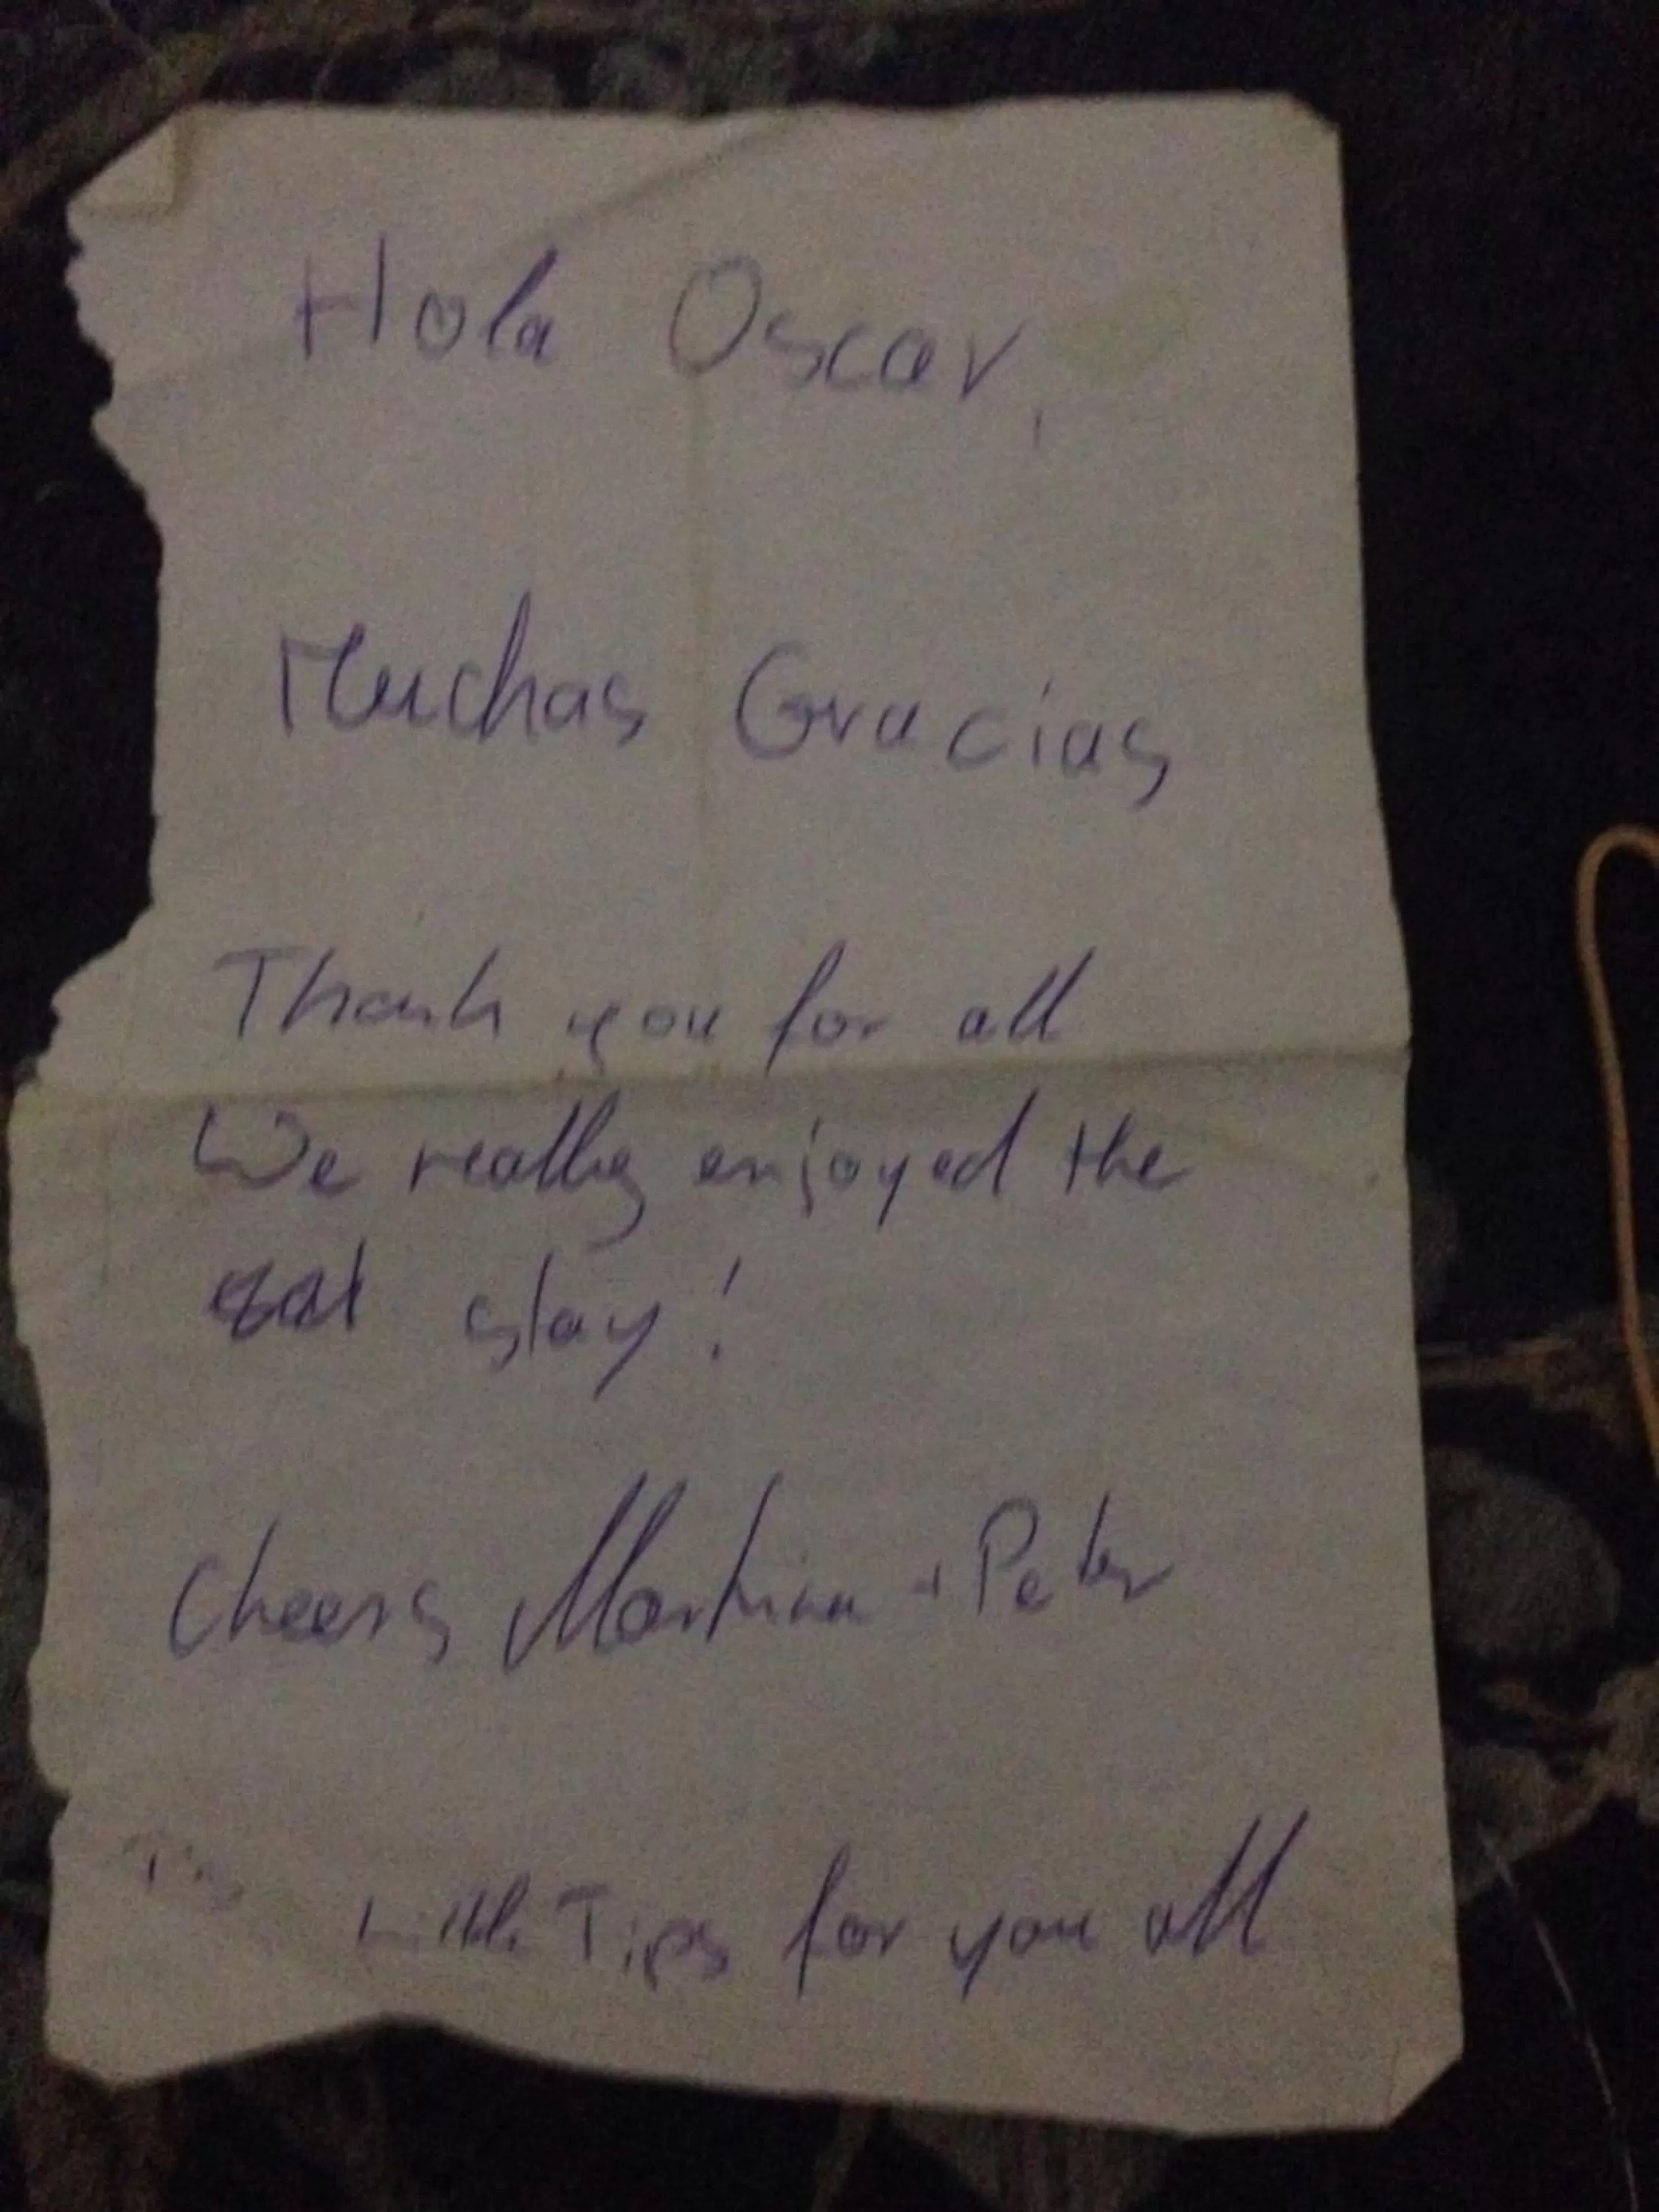 Hola Oscar,
Muchas Gracias
Thank you for all
We really enjoyed the
stay!
Cheers Martina + Peter
Little Tips for you all